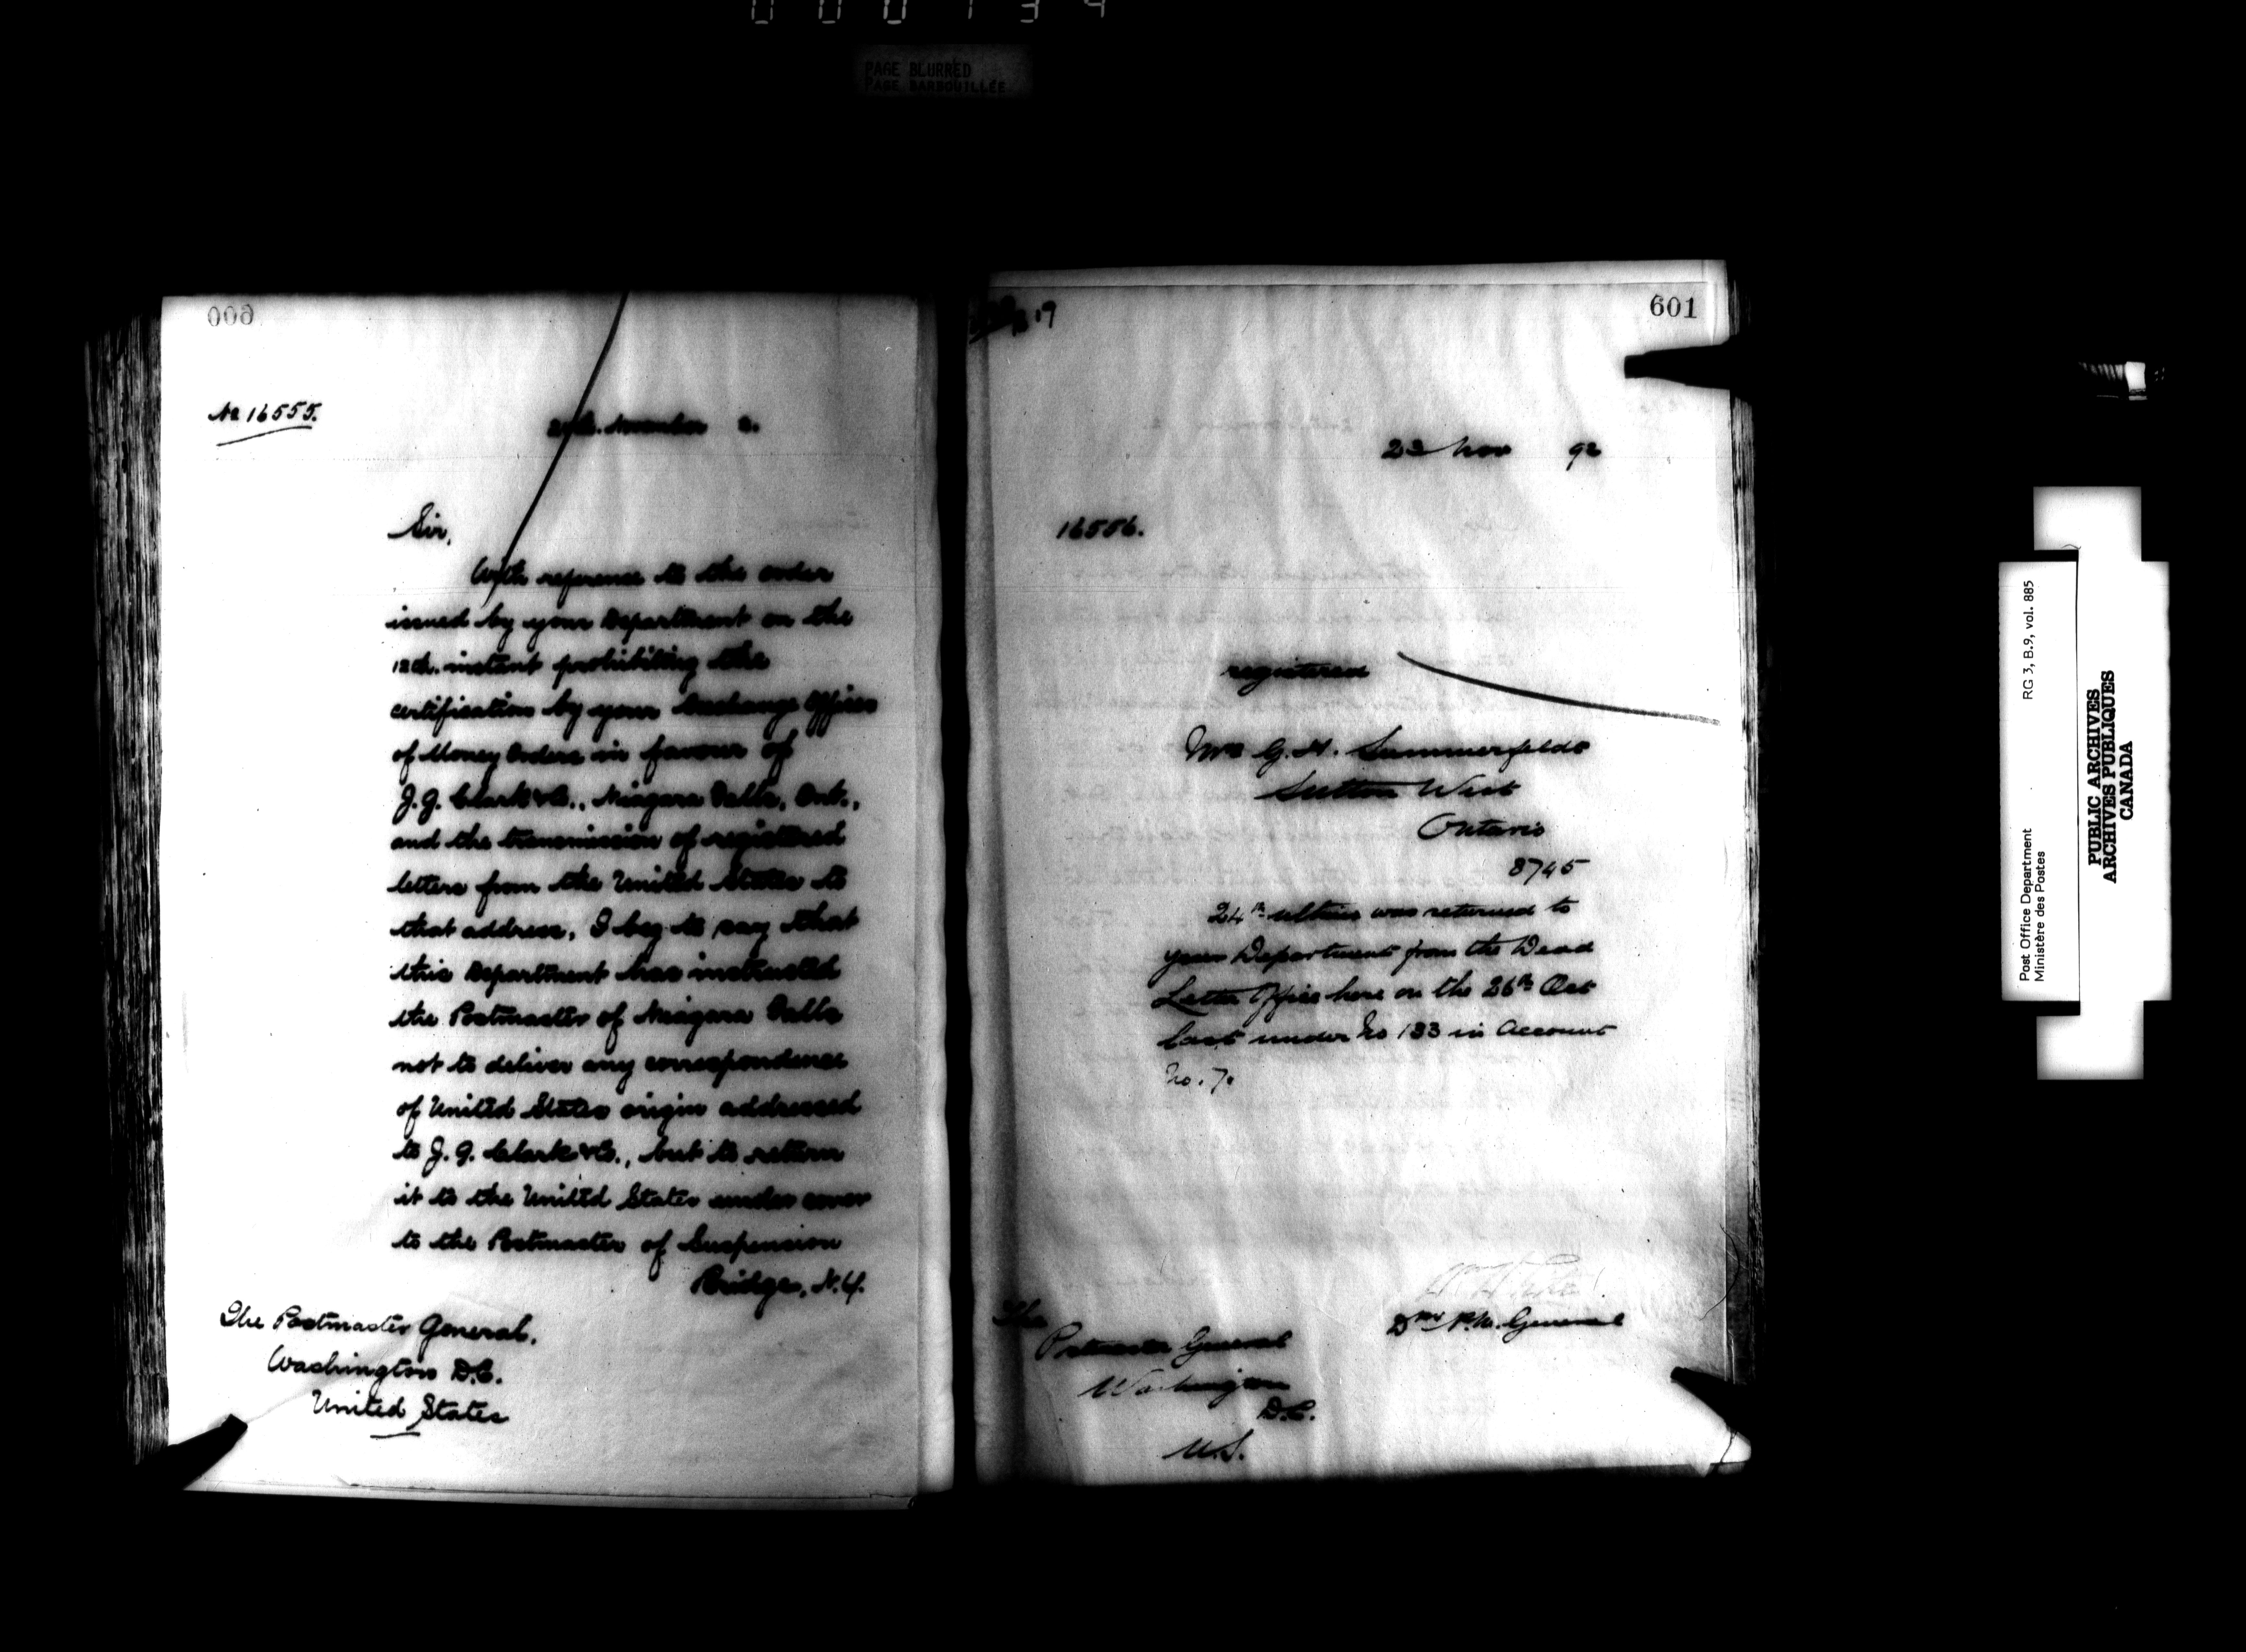 000134
PAGE BLURRED
PAGE BARBOUILLÉE
600
No 16555.
November 2.
Sir,
With reference to the order
issued by your Department on the
12th. instant prohibiting the
certification by your Exchange Offices
of Money Orders in favour of
J. G. Clark & Co., Niagara Falls, Ont.,
and the transmission of registered
letters from the United States to
that address, I beg to say that
this Department has instructed
the Postmaster of Niagara Falls
not to deliver any correspondence
of United States origin addressed
to J. G. Clark & Co., but to return
it to the United States under cover
to the Postmaster of Suspension
Bridge, N.Y.
The Postmaster General,
Washington D.C.
United States
601
23 Nov 92
16556.
registered
Mrs G. H. Summerfeldt
Sutton West
Ontario
8745
24th ultimo was returned to
your Department from the Dead
Letter Office here on the 26th Oct
last under No 133 in Account
No. 7.
Dpy P.M. General
The
Postmaster General
Washington
D.C.
U.S.
Post Office Department RG 3, B.9, vol. 885
Ministère des Postes
PUBLIC ARCHIVES
ARCHIVES PUBLIQUES
CANADA